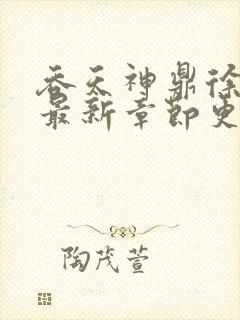 吞天神鼎徐
最新章节更
陶茂萱